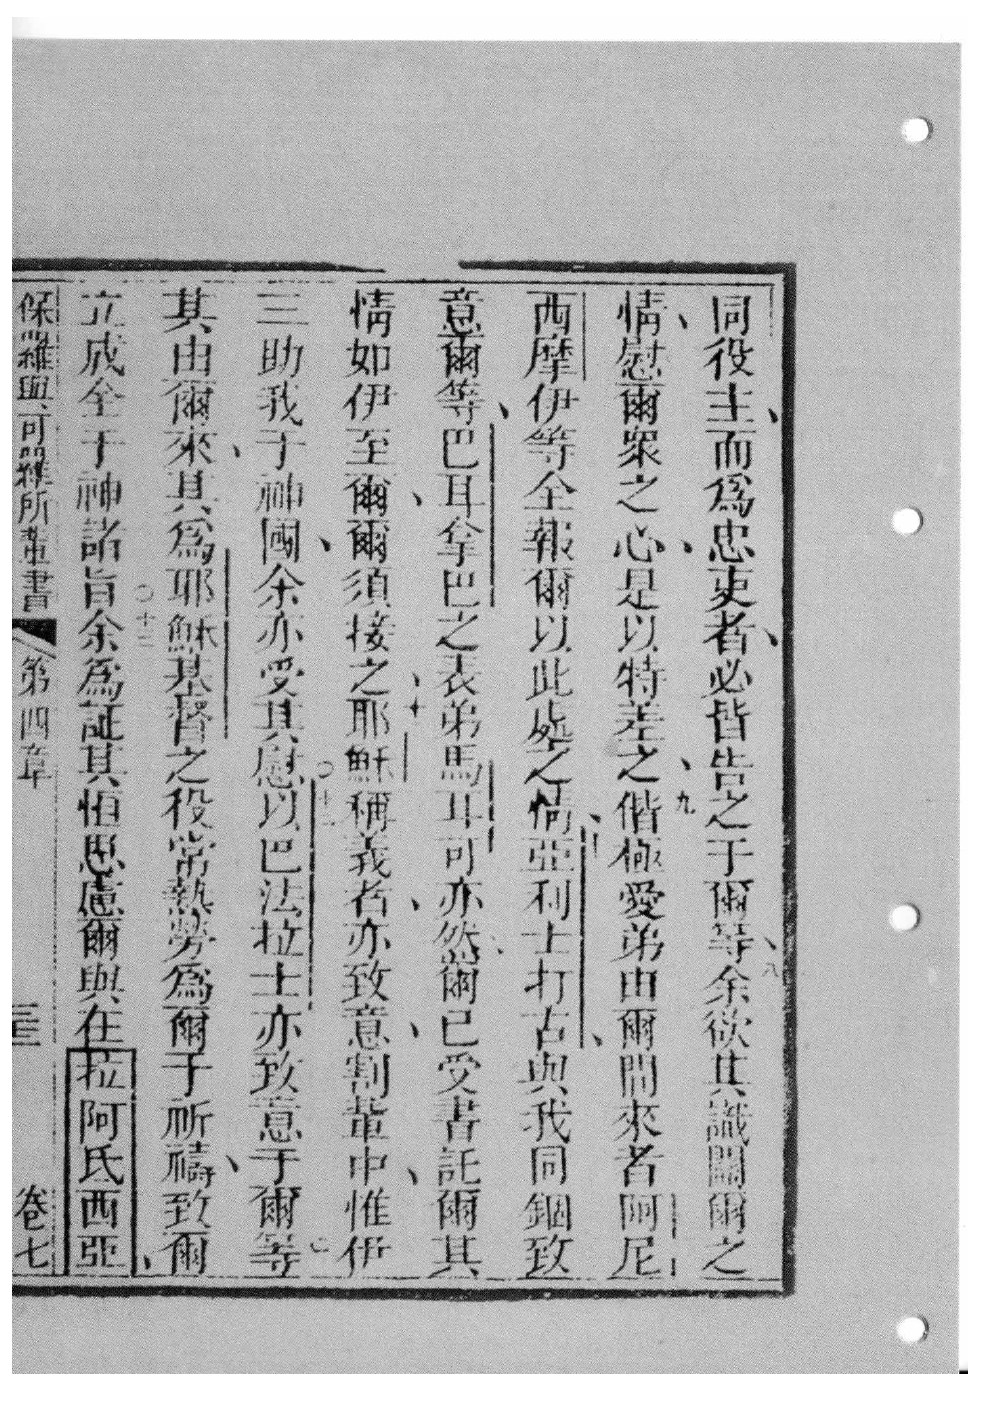 同役主、而爲忠吏者、必皆告之于爾等、八余欲其識關爾之
情、慰爾衆之心、是以特差之、九偕極愛弟由爾間來者阿尼
西摩伊等全報爾以此處之情、亞利士打古、與我同錮致
意爾等、巴耳拿巴之表弟馬耳可亦然、爾已受書託爾其
情如伊至爾、爾須接之、十耶穌稱義者、亦致意、割輩中、惟伊
三助我于神國、余亦受其慰。十二以巴法拉士亦致意于爾等
其由爾來、其爲耶穌基督之役常熱勞爲爾于祈禱、致爾
立成全于神諸旨。十三余爲証其怕思慮爾與在拉阿氏西亞、
保羅與可羅所輩書 第四章 卷七